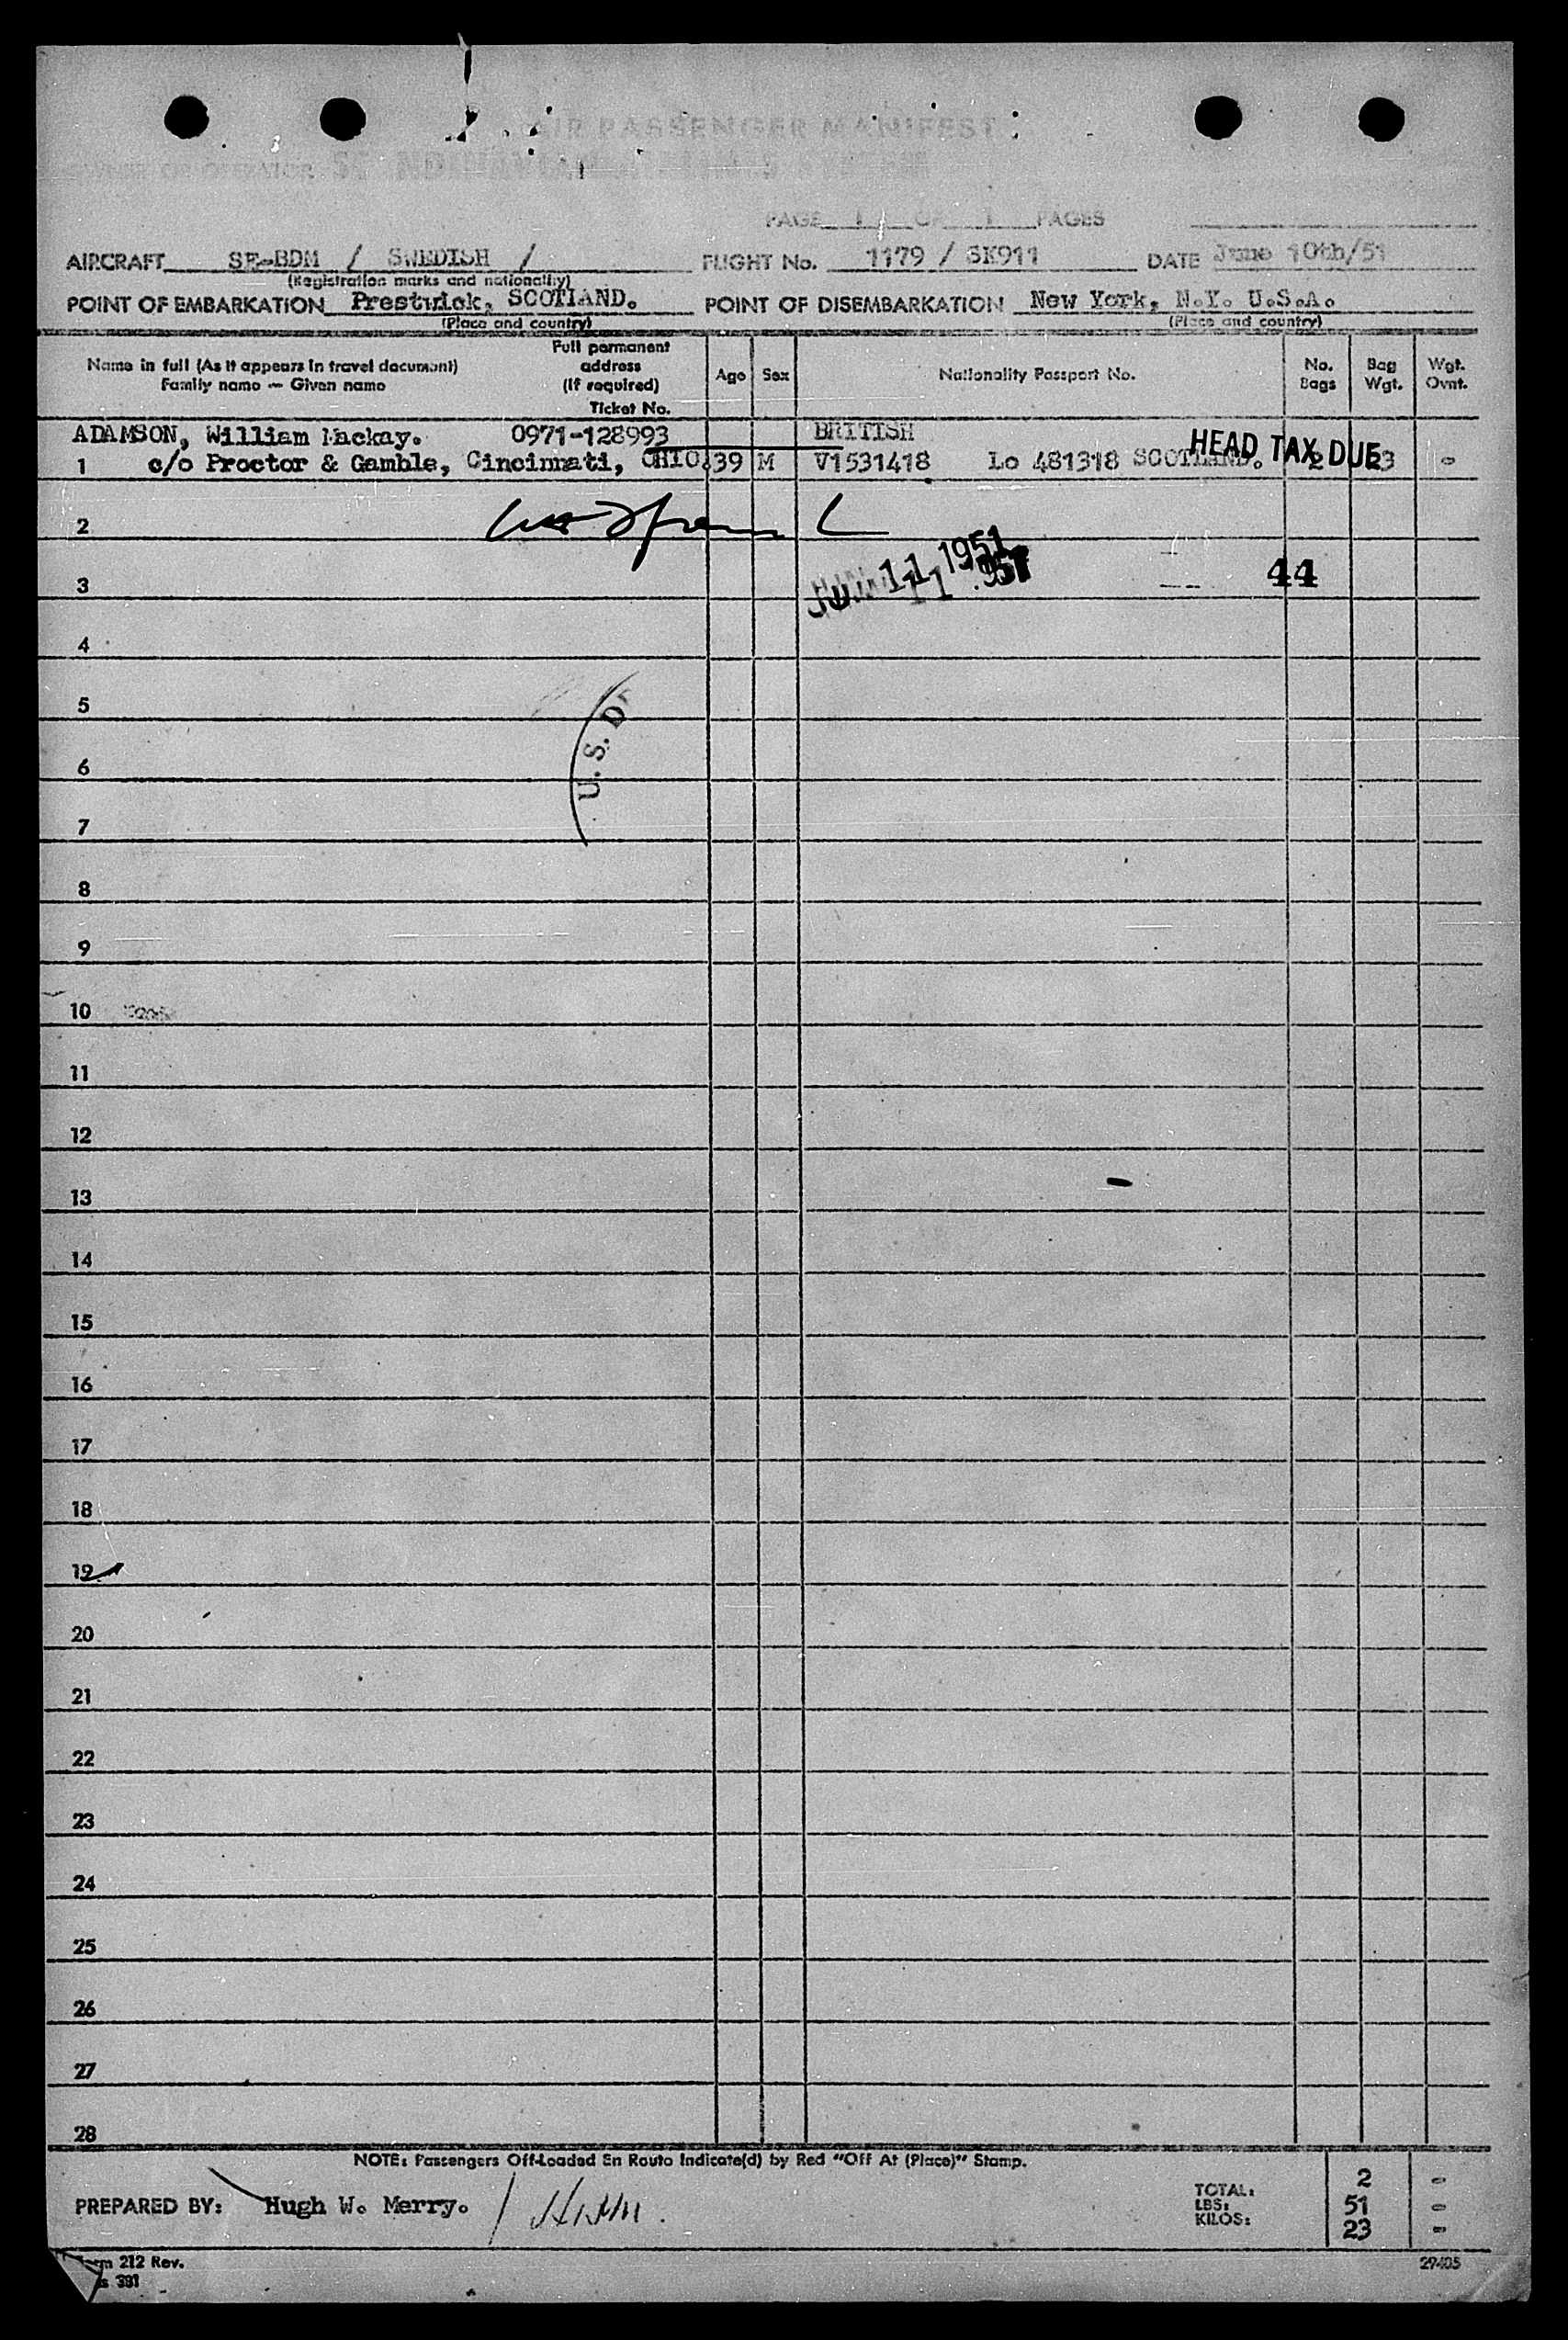 AIR PASSENGER MANIFEST
OWNER OR OPERATOR SCANDINAVIAN AIRLINES SYSTEM
PAGE 1 OF 1 PAGES
AIRCRAFT SE-BDM / SWEDISH / FLIGHT No. 1179 / SK911 DATE June 10th/51
(Registration marks and nationality)
POINT OF EMBARKATION Prestwick, SCOTLAND. POINT OF DISEMBARKATION New York, N.Y. U.S.A.
(Place and country) (Place and country)
Name in full (As it appears in travel document) Family name — Given name
Full permanent address (If required) Ticket No.
Age Sex Nationality Passport No. No. Bags Bag Wgt. Wgt. Ovnt.
ADAMSON, William Mackay. 0971-128993 BRITISH
1 c/o Proctor & Gamble, Cincinnati, OHIO. 39 M V1531418 Lo 481318 SCOTLAND. 2 23 -
HEAD TAX DUE
2
JUN 11 1951
3 44
4
5
U. S. D.
6
7
8
9
10
11
12
13
14
15
16
17
18
19
20
21
22
23
24
25
26
27
28
NOTE: Passengers Off-Loaded En Route Indicate(d) by Red "Off At (Place)" Stamp.
PREPARED BY: Hugh W. Merry.
TOTAL: 2 -
LBS: 51 -
KILOS: 23 -
Form 212 Rev.
381
29405